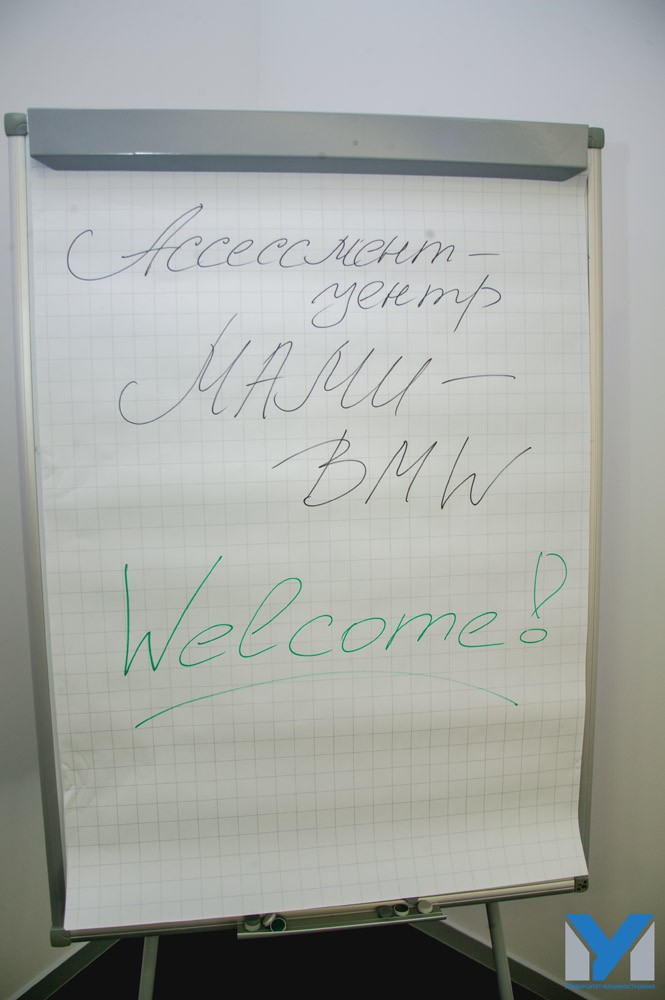 Ассессмент-
центр
МАМИ —
BMW
Welcome!